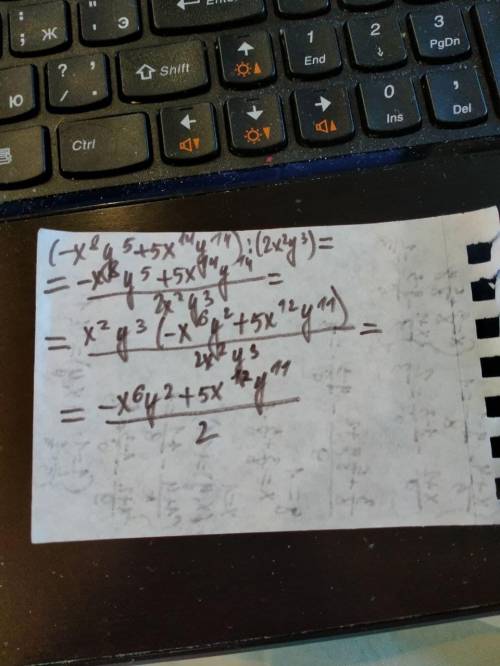 ; Ж
' Э
Enter
1 End
2
3 PgDn
Ю
? , / .
Shift
0 Ins
, Del
Ctrl
(-x⁸y⁵+5x¹⁴y¹⁴):(2x²y³)=
= -x⁸y⁵+5x¹⁴y¹⁴ / 2x²y³ =
= x²y³(-x⁶y²+5x¹²y¹¹) / 2x²y³ =
= -x⁶y²+5x¹²y¹¹ / 2